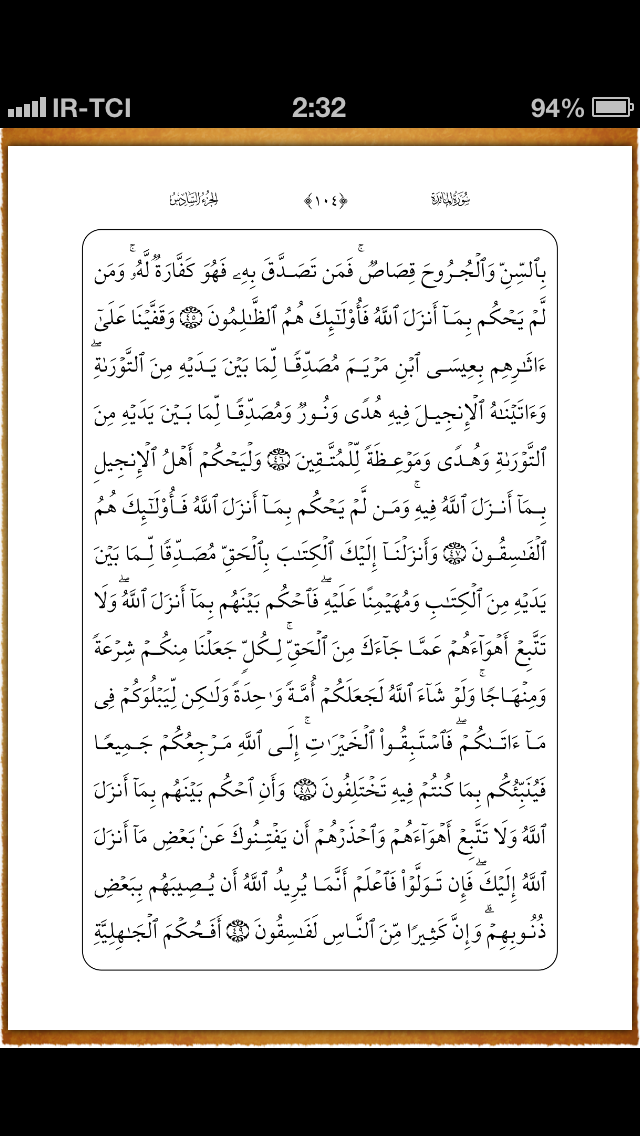 IR-TCI 2:32 94%
سُورَةُ المَائِدَة ﴿١٠٤﴾ الجُزْءُ السَّادِسُ
بِٱلسِّنِّ وَٱلۡجُرُوحَ قِصَاصٞۚ فَمَن تَصَدَّقَ بِهِۦ فَهُوَ كَفَّارَةٞ لَّهُۥۚ وَمَن
لَّمۡ يَحۡكُم بِمَآ أَنزَلَ ٱللَّهُ فَأُوْلَٰٓئِكَ هُمُ ٱلظَّٰلِمُونَ ٤٥ وَقَفَّيۡنَا عَلَىٰٓ
ءَاثَٰرِهِم بِعِيسَى ٱبۡنِ مَرۡيَمَ مُصَدِّقٗا لِّمَا بَيۡنَ يَدَيۡهِ مِنَ ٱلتَّوۡرَىٰةِۖ
وَءَاتَيۡنَٰهُ ٱلۡإِنجِيلَ فِيهِ هُدٗى وَنُورٞ وَمُصَدِّقٗا لِّمَا بَيۡنَ يَدَيۡهِ مِنَ
ٱلتَّوۡرَىٰةِ وَهُدٗى وَمَوۡعِظَةٗ لِّلۡمُتَّقِينَ ٤٦ وَلۡيَحۡكُمۡ أَهۡلُ ٱلۡإِنجِيلِ
بِمَآ أَنزَلَ ٱللَّهُ فِيهِۚ وَمَن لَّمۡ يَحۡكُم بِمَآ أَنزَلَ ٱللَّهُ فَأُوْلَٰٓئِكَ هُمُ
ٱلۡفَٰسِقُونَ ٤٧ وَأَنزَلۡنَآ إِلَيۡكَ ٱلۡكِتَٰبَ بِٱلۡحَقِّ مُصَدِّقٗا لِّمَا بَيۡنَ
يَدَيۡهِ مِنَ ٱلۡكِتَٰبِ وَمُهَيۡمِنًا عَلَيۡهِۖ فَٱحۡكُم بَيۡنَهُم بِمَآ أَنزَلَ ٱللَّهُۖ وَلَا
تَتَّبِعۡ أَهۡوَآءَهُمۡ عَمَّا جَآءَكَ مِنَ ٱلۡحَقِّۚ لِكُلّٖ جَعَلۡنَا مِنكُمۡ شِرۡعَةٗ
وَمِنۡهَاجٗاۚ وَلَوۡ شَآءَ ٱللَّهُ لَجَعَلَكُمۡ أُمَّةٗ وَٰحِدَةٗ وَلَٰكِن لِّيَبۡلُوَكُمۡ فِي
مَآ ءَاتَىٰكُمۡۖ فَٱسۡتَبِقُواْ ٱلۡخَيۡرَٰتِۚ إِلَى ٱللَّهِ مَرۡجِعُكُمۡ جَمِيعٗا
فَيُنَبِّئُكُم بِمَا كُنتُمۡ فِيهِ تَخۡتَلِفُونَ ٤٨ وَأَنِ ٱحۡكُم بَيۡنَهُم بِمَآ أَنزَلَ
ٱللَّهُ وَلَا تَتَّبِعۡ أَهۡوَآءَهُمۡ وَٱحۡذَرۡهُمۡ أَن يَفۡتِنُوكَ عَنۢ بَعۡضِ مَآ أَنزَلَ
ٱللَّهُ إِلَيۡكَۖ فَإِن تَوَلَّوۡاْ فَٱعۡلَمۡ أَنَّمَا يُرِيدُ ٱللَّهُ أَن يُصِيبَهُم بِبَعۡضِ
ذُنُوبِهِمۡۗ وَإِنَّ كَثِيرٗا مِّنَ ٱلنَّاسِ لَفَٰسِقُونَ ٤٩ أَفَحُكۡمَ ٱلۡجَٰهِلِيَّةِ